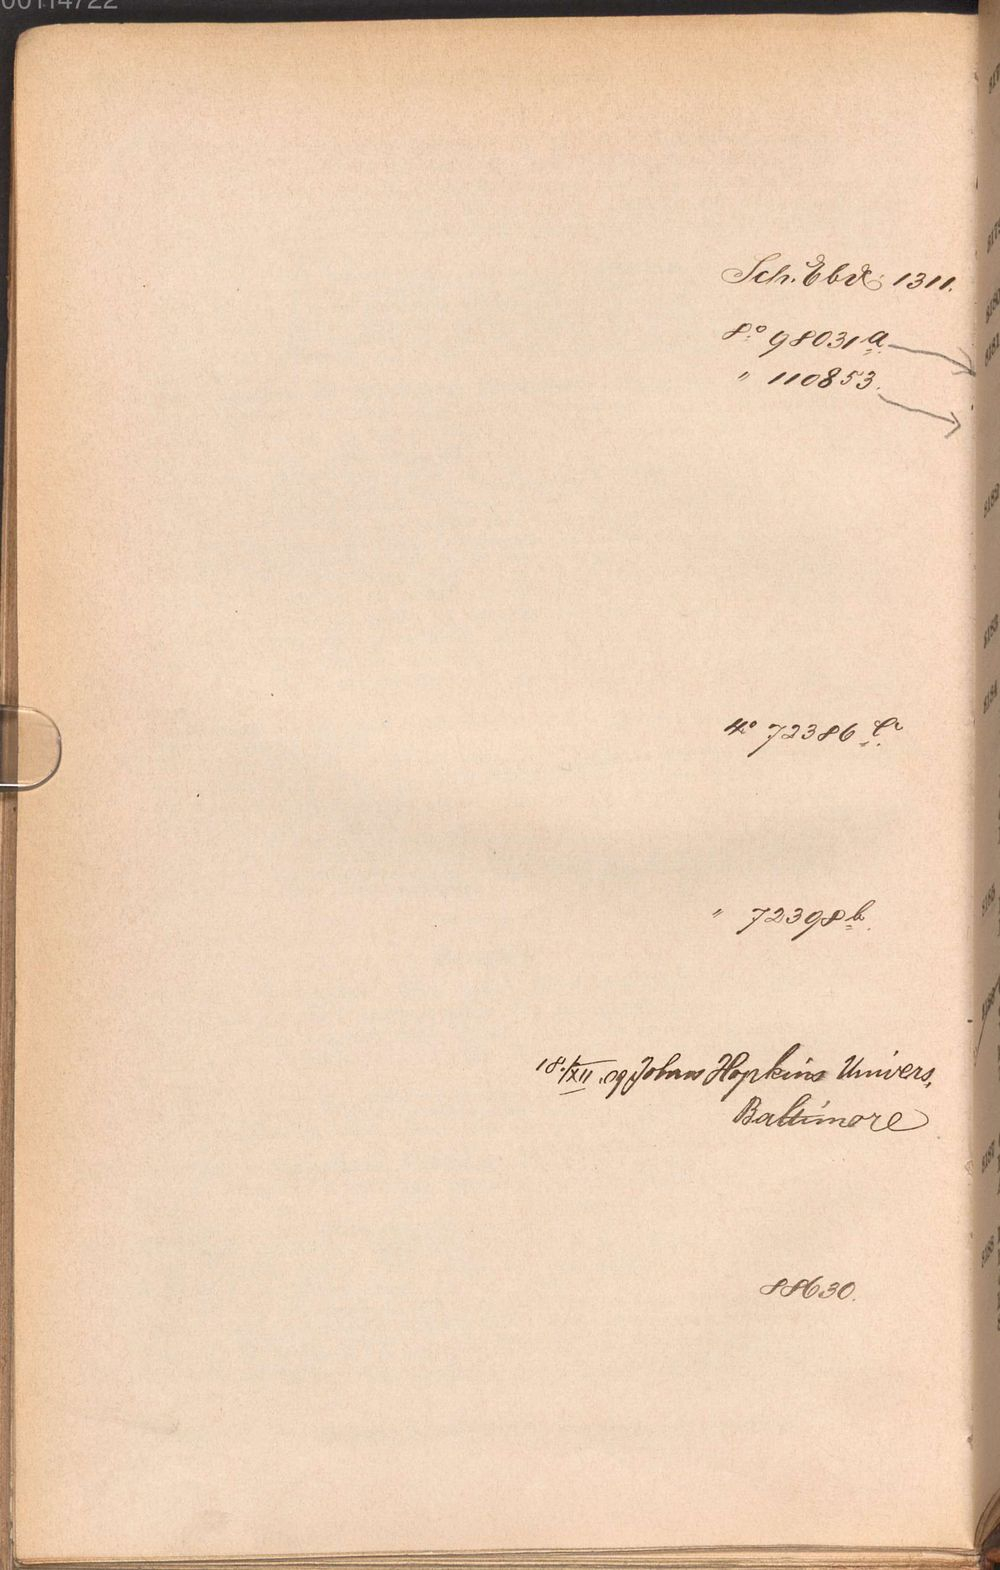 00114722
Sch. Ebd. 1311.
8.° 98031 a.
" 110853.
4.° 72386
" 72398 b.
18./XII. 09 Johns Hopkins Univers.
Baltimore
88630.